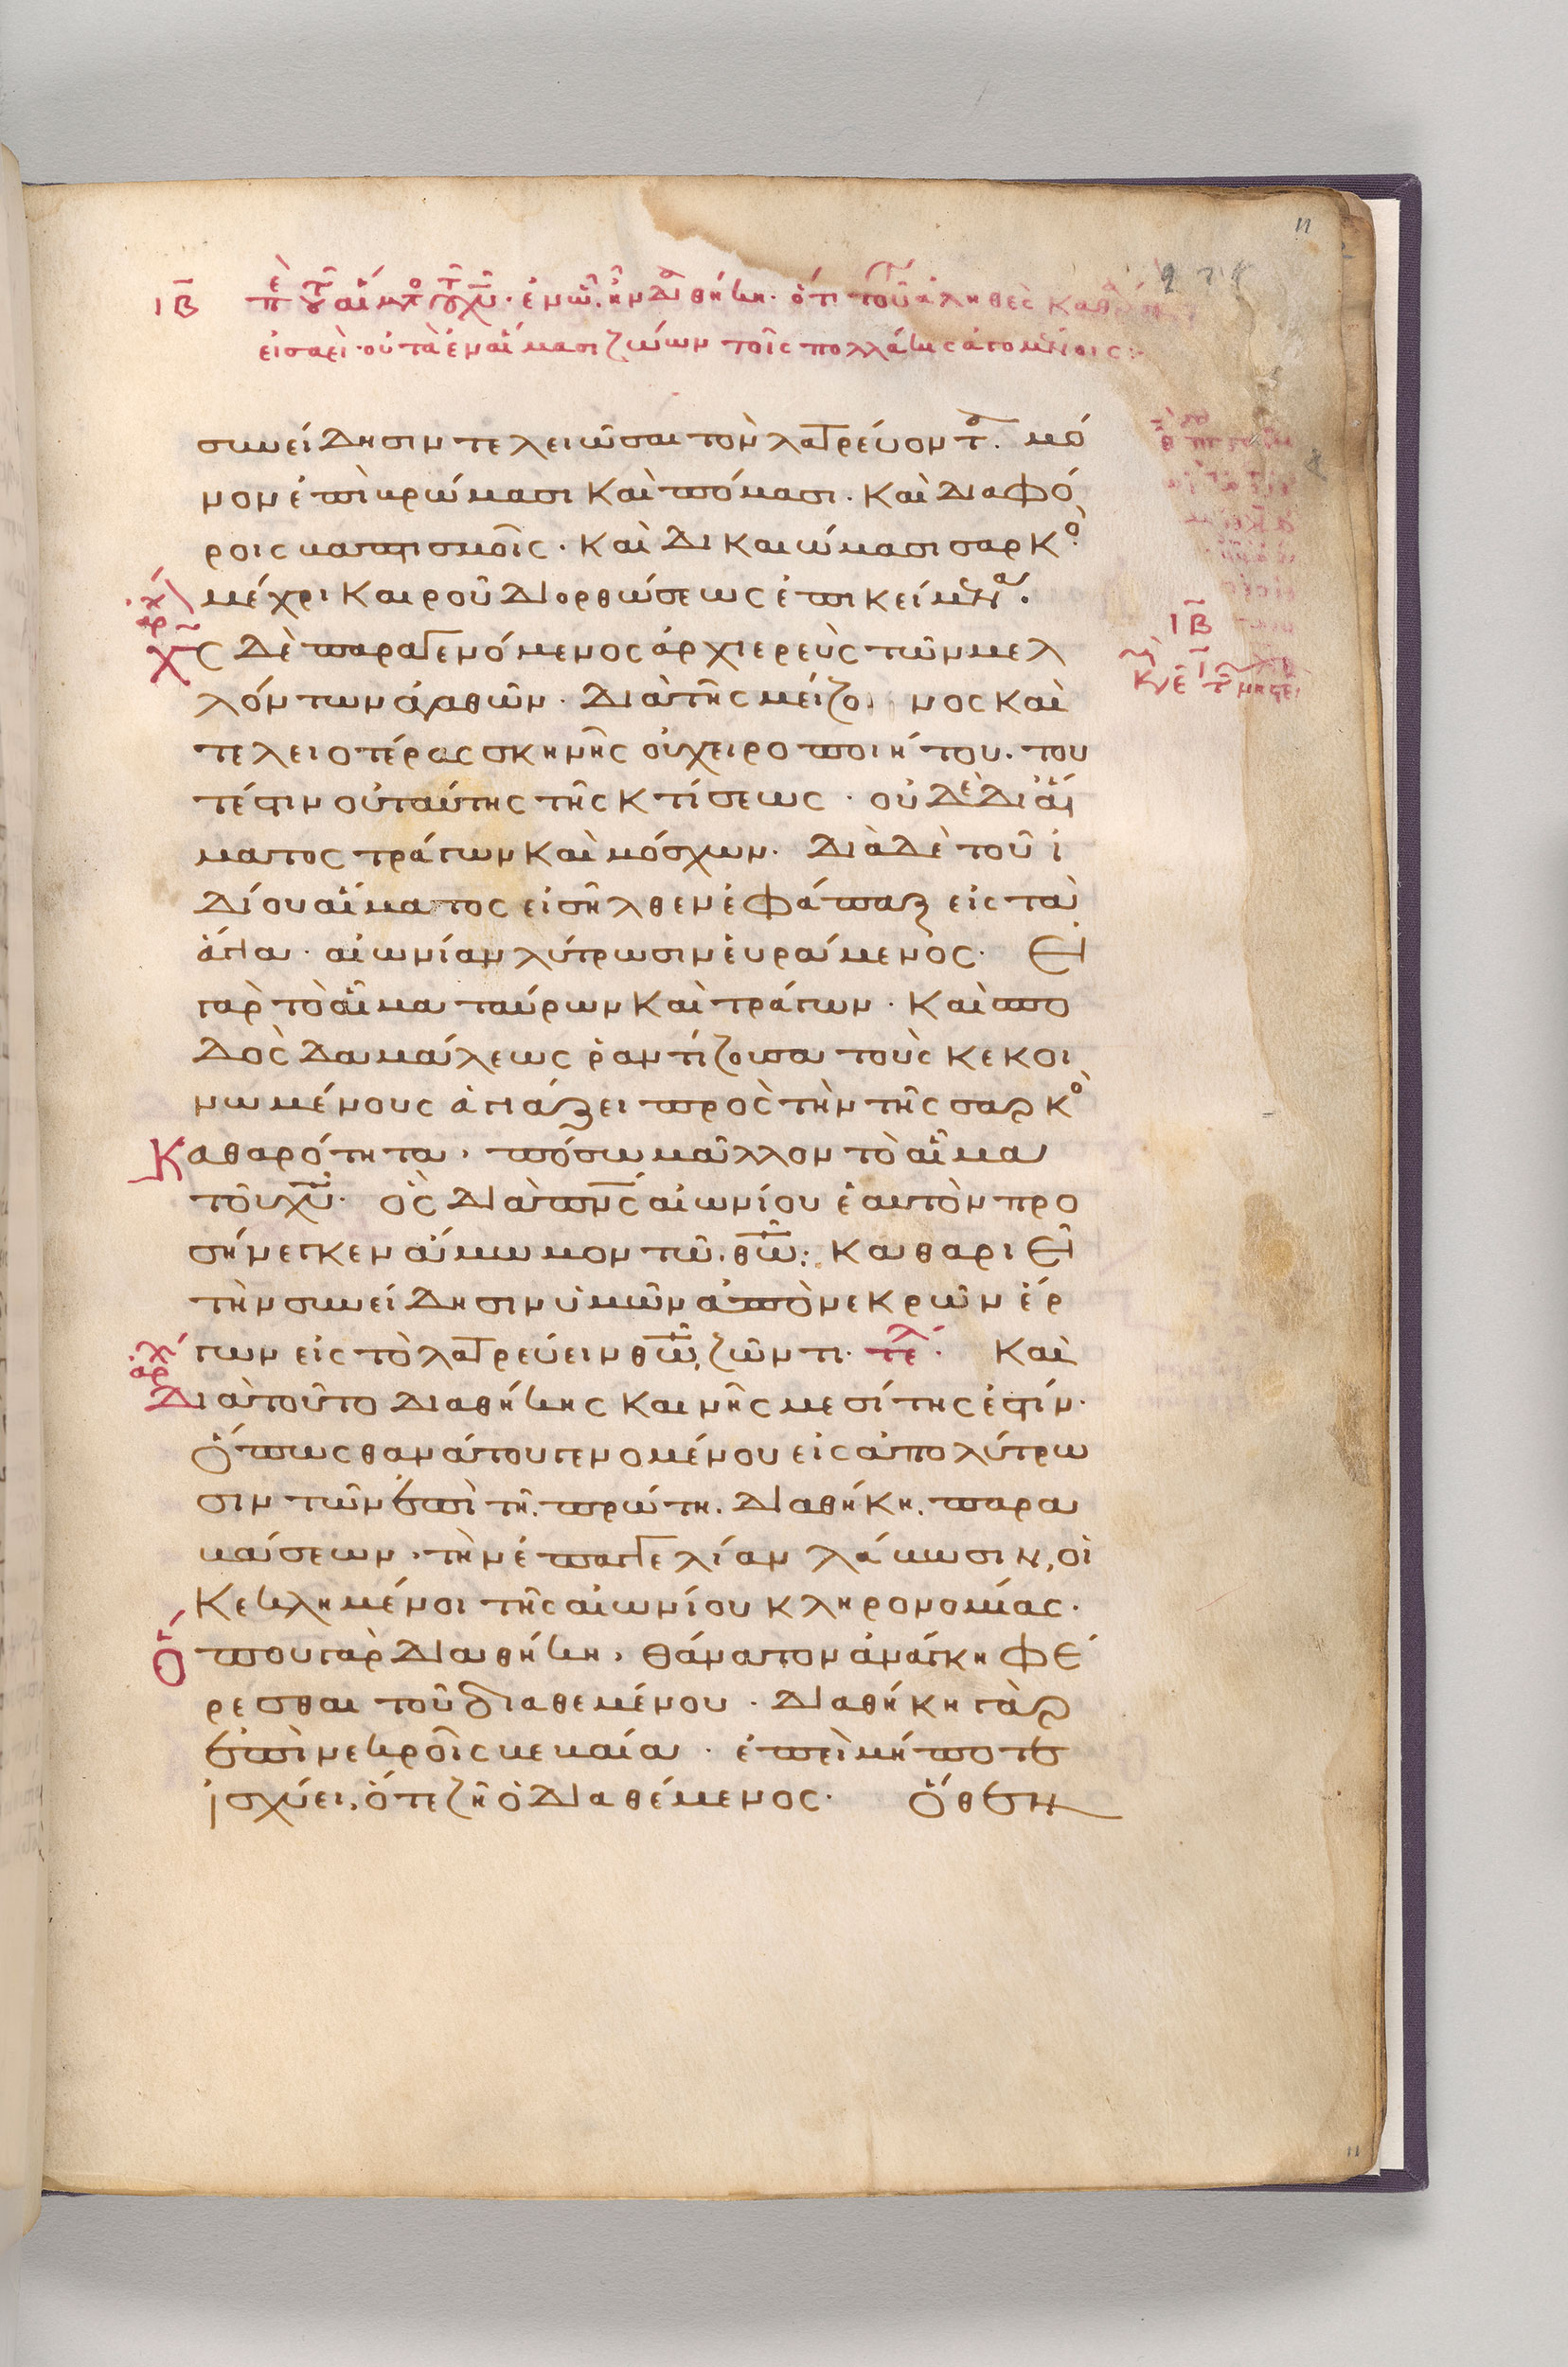 ΙΒ
εἰσαεὶ · οὐ τὰ ἐν αἵμασι ζώων τοῖς πολλάκις
συνείδησιν τελειῶσαι τὸν λατρεύοντ. μό
νον ἐπὶ βρώμασι καὶ πόμασι. καὶ διαφό
ροις βαπτισμοῖς · καὶ δικαιώμασι σαρκὸ
μέχρι καιροῦ διορθώσεως ἐπικείμενα.
χς δὲ παραγενόμενος ἀρχιερεὺς τῶν μελ
λόντων ἀγαθῶν · διὰ τῆς μείζο νος καὶ
τελειοτέρας σκηνῆς οὐ χειροποιήτου. του
τέστιν οὐ ταύτης τῆς κτίσεως · οὐδὲ δι αἵ
ματος τράγων καὶ μόσχων. διὰ δὲ τοῦ ἰ
δίου αἵματος εἰσῆλθεν ἐφάπαξ εἰς τὰ
ἅγια · αἰωνίαν λύτρωσιν εὑράμενος. Εἰ
γὰρ τὸ αἷμα ταύρων καὶ τράγων · καὶ σπο
δὸς δαμάλεως ῥαντίζουσα τοὺς κεκοι
νωμένους ἁγιάζει πρὸς τὴν τῆς σαρκὸ
Καθαρότητα, πόσω μᾶλλον τὸ αἷμα
τοῦ χυ · ὃς διὰ πνς αἰωνίου ἑαυτὸν προ
σήνεγκεν ἄμωμον τῶ θω · καθαριεῖ
τὴν συνείδησιν ὑμῶν ἀπὸ νεκρῶν ἔρ
γων εἰς τὸ λατρεύειν θω ζῶντι · τε. Καὶ
διὰ τοῦτο διαθήκης καινῆς μεσίτης ἐστίν.
ὅπως θανάτου γενομένου εἰς ἀπολύτρω
σιν τῶν ἐπὶ τῆ πρώτη διαθήκη παρα
βάσεων, τὴν ἐπαγγελίαν λάβωσιν, οἱ
κεκλημένοι τῆς αἰωνίου κληρονομίας.
Ὅπου γὰρ διαθήκη, θάνατον ἀνάγκη φέ
ρεσθαι τοῦ διαθεμένου · διαθήκη γὰρ
ἐπὶ νεκροῖς βεβαία · ἐπεὶ μήποτε
ἰσχύει, ὅτε ζῆ ὁ διαθέμενος. ὅθεν
ΙΒ
11